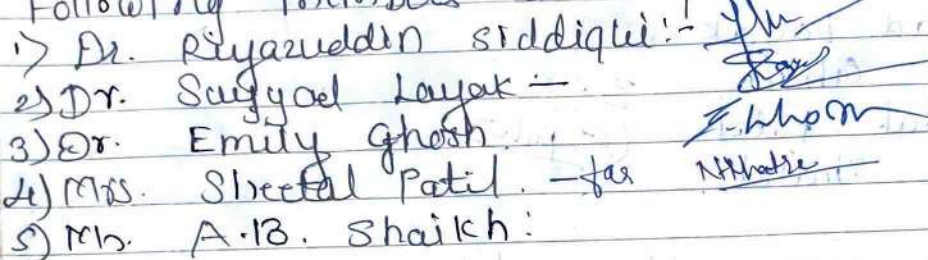 Following
1) Dr. Riyazuddin siddiqui :-
2) Dr. Sayyad Layak -
3) Dr. Emily Ghosh.
4) Mrs. Sheetal Patil. - for NMhatre
5) Mr. A.B. Shaikh :